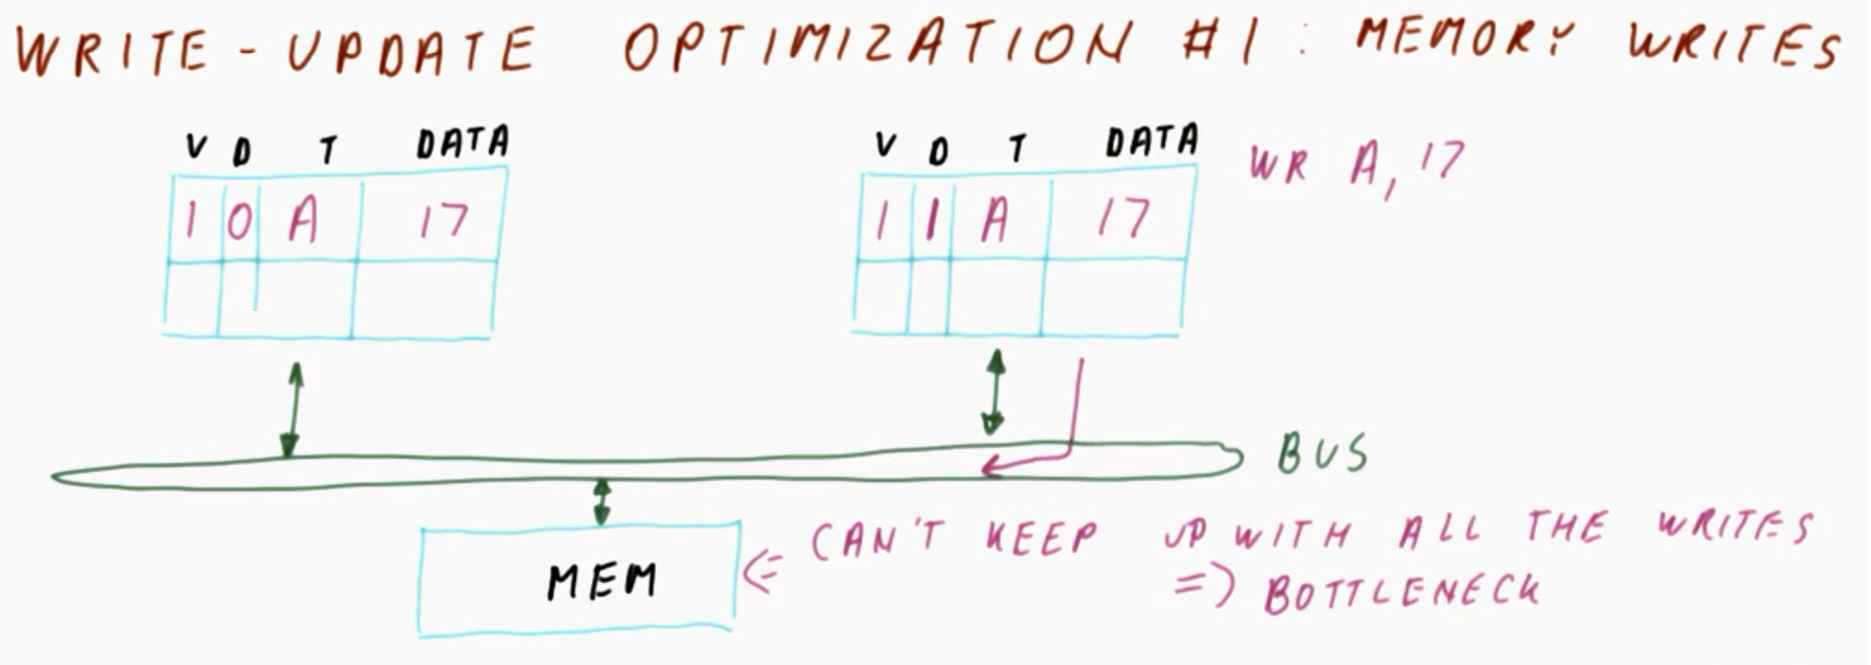 WRITE-UPDATE OPTIMIZATION #1: MEMORY WRITES
V D T DATA
1 0 A 17
V D T DATA
1 1 A 17
WR A, 17
BUS
MEM
<= CAN'T KEEP UP WITH ALL THE WRITES
=> BOTTLENECK